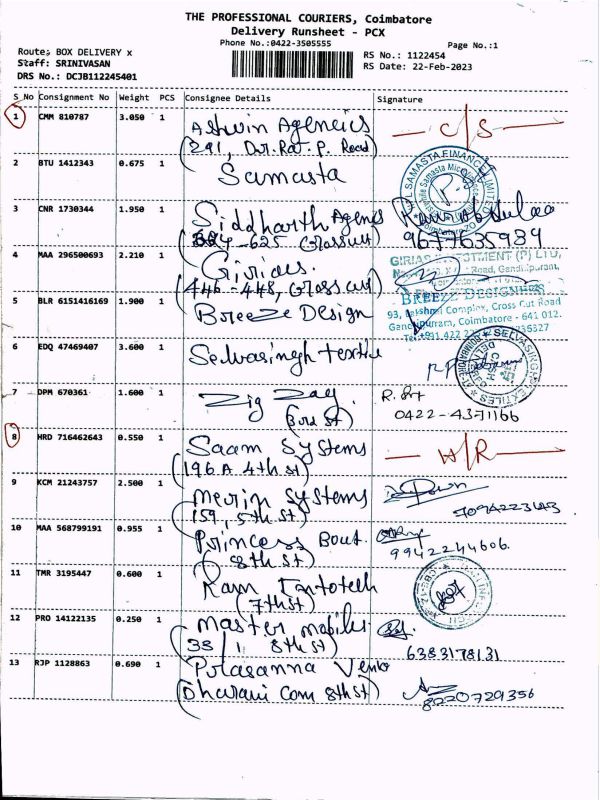 THE PROFESSIONAL COURIERS, Coimbatore
Delivery Runsheet - PCX
Phone No.:0422-3505555
Page No.:1
Route: BOX DELIVERY x
Staff: SRINIVASAN
DRS No.: DCJB112245401
RS No.: 1122454
RS Date: 22-Feb-2023
S No Consignment No Weight PCS Consignee Details Signature
1 CMM 810787 3.050 1 Ashwin Agencies C/S
(291, Road)
2 BTU 1412343 0.675 1 Samasta
SAMASTA FINANCE LIMITED
3 CNR 1730344 1.950 1 Siddharth Agencs
-625 Crosscut) 9677635989
4 MAA 296500693 2.210 1 Girias.
(446-448, Cross cut)
GIRIAS INVESTMENT (P) LTD,
Road, Gandhipuram,
5 BLR 6151416169 1.900 1 Breeze Design
BREEZE DESIGNERS
93, Lakshmi Complex, Cross Cut Road
Gandhipuram, Coimbatore - 641 012.
6 EDQ 47469407 3.600 1 Selvasingh textile
SELVASINGH TEXTILES
7 DPM 670361 1.600 1 Zig Zag
(3rd st) 0422-4371166
8 HRD 716462643 0.550 1 Saam Systems
(196 A 4th st)
9 KCM 21243757 2.500 1 Merin Systems
(159, 5th st)
10 MAA 568799191 0.955 1 Princess Bout
(8th st) 9942244606
11 TMR 3195447 0.600 1 Ram Infotech
(7th st)
12 PRO 14122135 0.250 1 master mobiles
(38/1 8th st) 6383178131
13 RJP 1128863 0.690 1 Prasanna
(Dharani Com 8th st) 8220729356